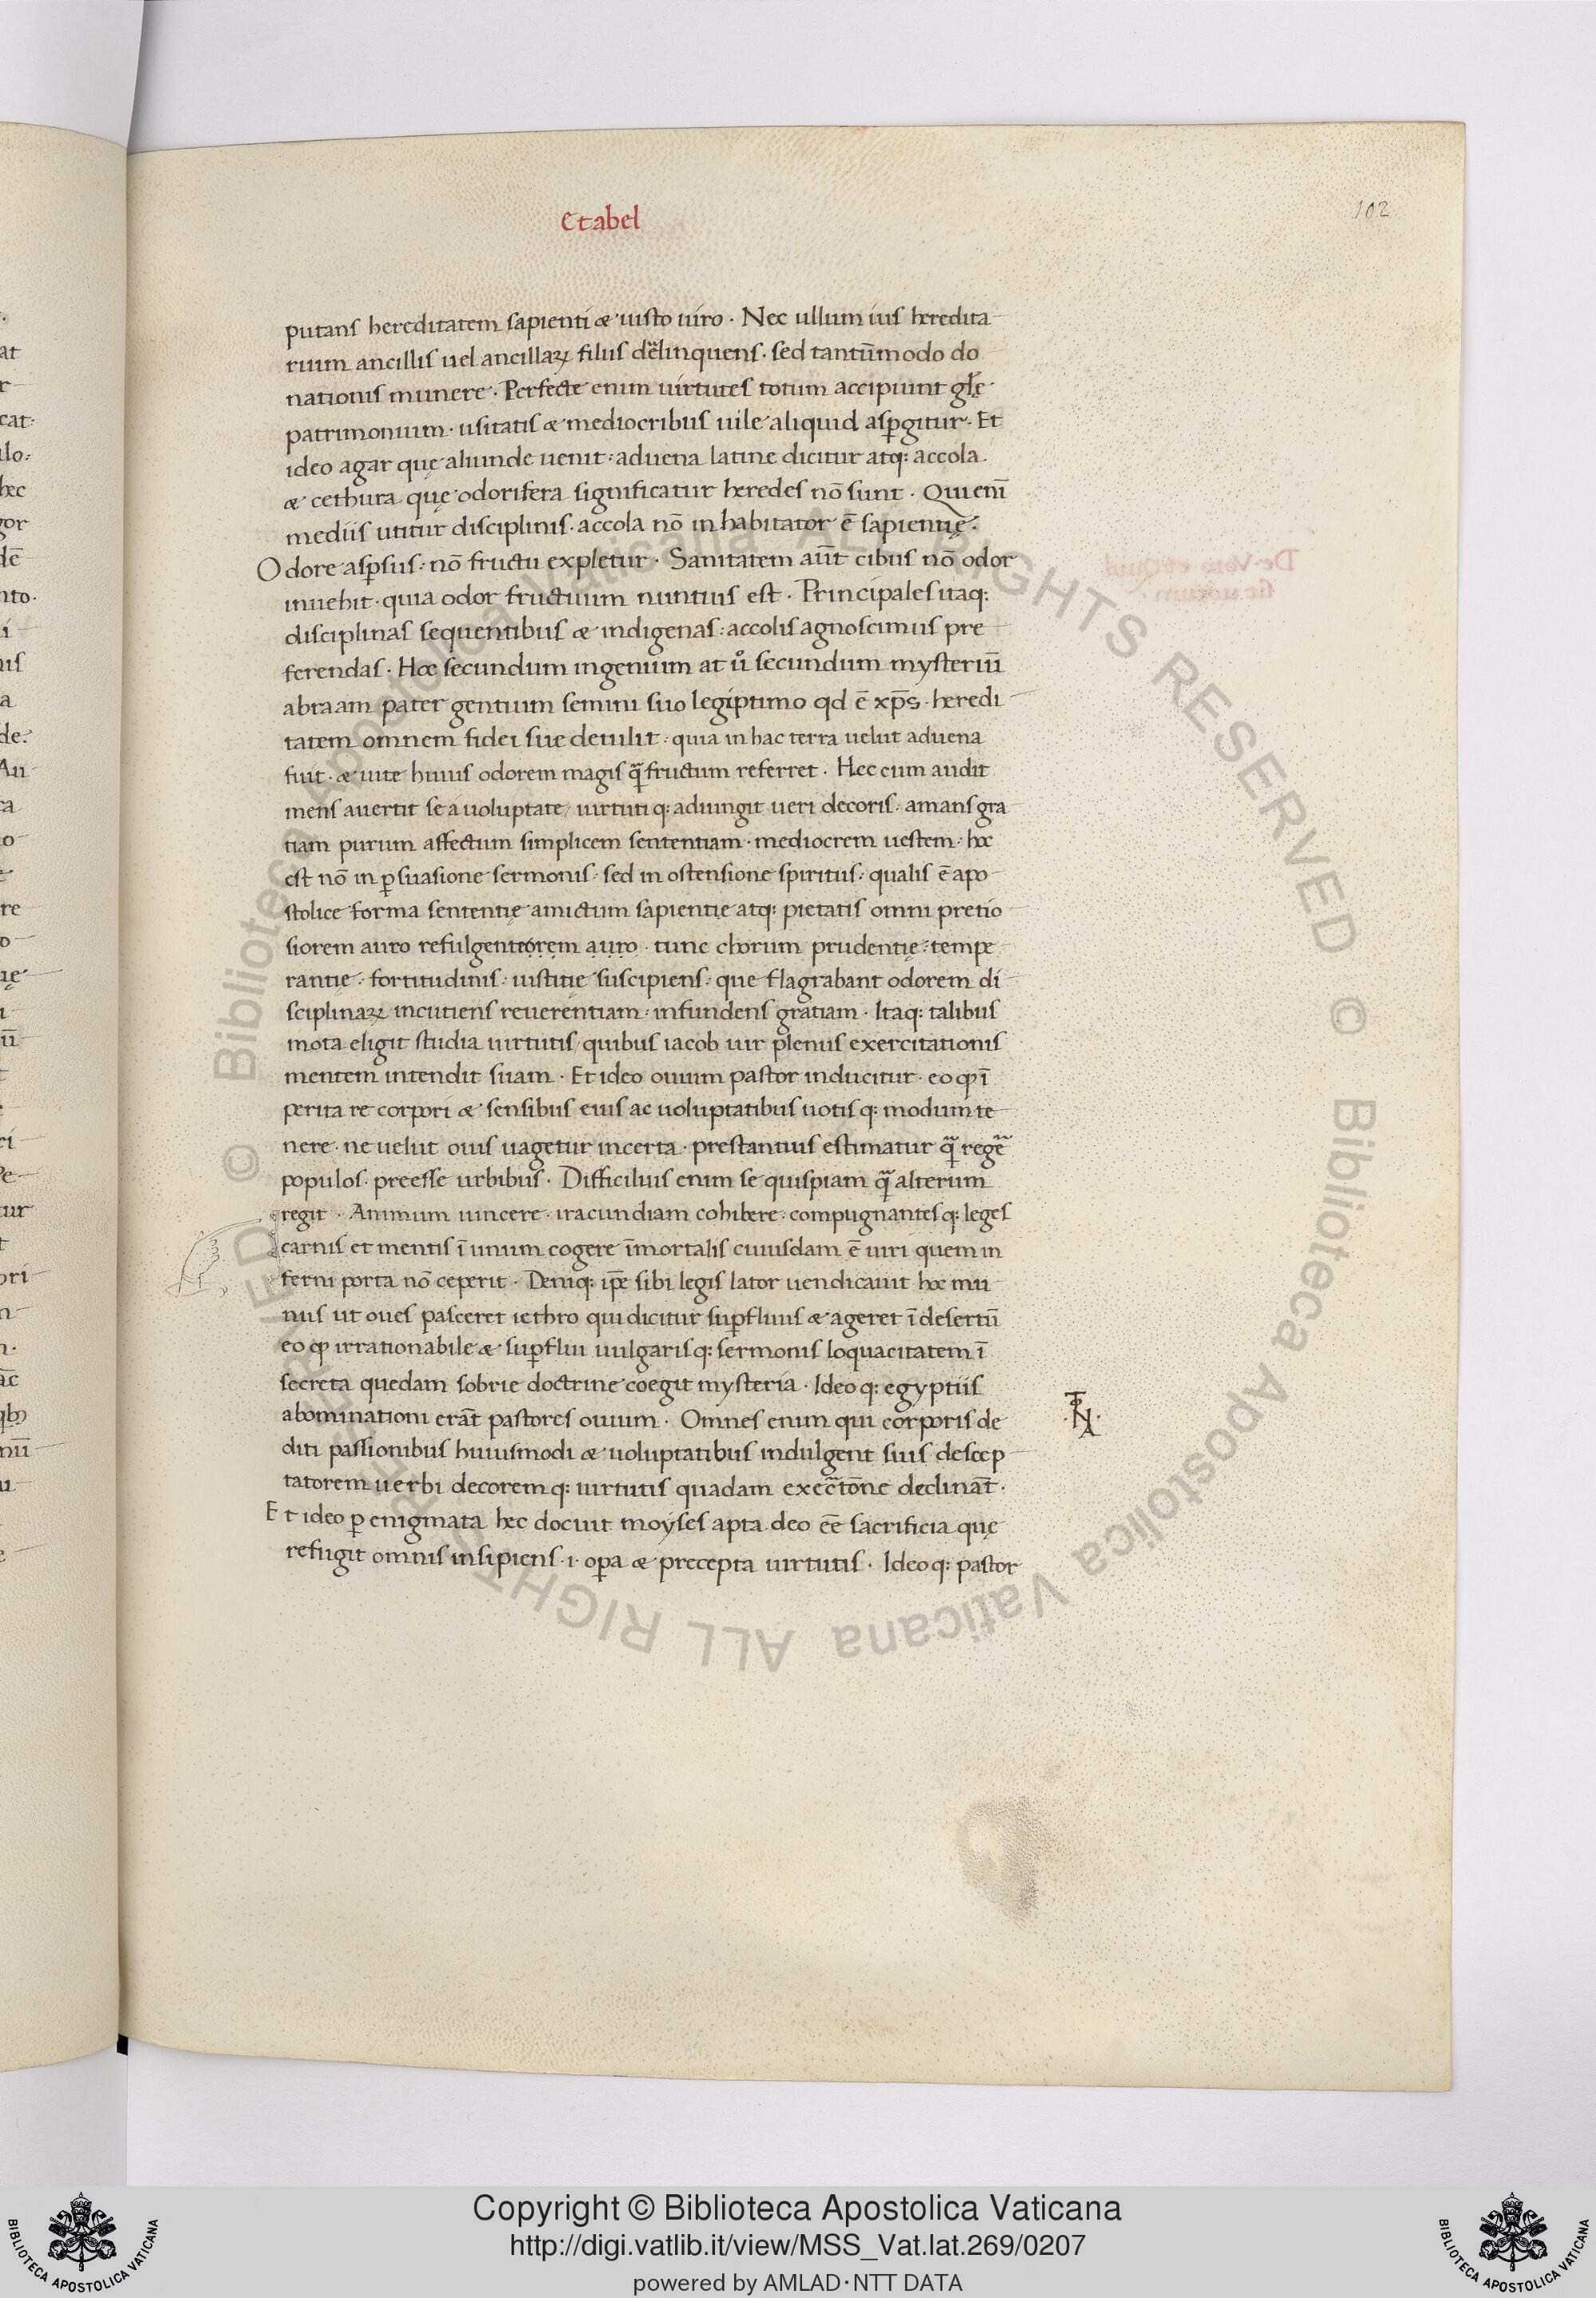 Et abel
102
putans hereditatem sapienti & iusto uiro · Nec ullum ius heredita
rium ancillis uel ancillaꝝ filiis delinquens · sed tantūmodo do
nationis munere · Perfecte enim uirtutes totum accipiunt gl̄ę
patrimonium · usitatis & mediocribus uile aliquid asꝑgitur · Et
ideo agar quę aliunde uenit : aduena latine dicitur atq: accola
& cethura quę odorifera significatur heredes nō sunt · Qui enī
mediis utitur disciplinis · accola nō inhabitator ē sapientię :
Odore asꝑsus : nō fructu expletur · Sanitatem aūt cibus nō odor
inuehit · quia odor fructuum nuntius est · Principales itaq:
disciplinas sequentibus & indigenas : accolis agnoscimus pre
ferendas · Hoc secundum ingenium at uº secundum mysteriū
abraam pater gentium semini suo legiptimo qd ē xp̄s · heredi
tatem omnem fidei sue detulit · quia in hac terra uelut aduena
fuit · & uite huius odorem magis q̄ fructum referret · Hec cum audit
mens auertit se a uoluptate / uirtuti q: adiungit ueri decoris : amans gra
tiam purum affectum simplicem sententiam · mediocrem uestem : hoc
est nō in ꝑsuasione sermonis · sed in ostensione spiritus : qualis ē apo
stolice forma sententię amictum sapientię atq: pietatis omni pretio
siorem auro refulgenteorem auro · tunc chorum prudentię : tempe
rantię : fortitudinis : iustitię suscipiens : que flagrabant odorem di
sciplinaꝝ incutiens reuerentiam : infundens gratiam · Itaq: talibus
mota eligit studia uirtutis / quibus iacob uir plenus exercitationis
mentem intendit suam · Et ideo ouium pastor inducitur · eo ꝙ ī
perita re corpori & sensibus eius ac uoluptatibus uotis q: modum te
nere · ne uelut ouis uagetur incerta · prestantius estimatur q̄ regē
populos · preesse urbibus · Difficilius enim se quispiam q̄ alterum
regit · Animum uincere · iracundiam cohibere : compugnantes q: leges
carnis et mentis ī unum cogere īmortalis cuiusdam ē uiri quem in
ferni porta nō ceperit · Deniq: ip̄e sibi legis lator uendicauit hoc mu
nus ut oues pasceret iethro qui dicitur suꝑfluus & ageret ī desertū
eo ꝙ irrationabile & suꝑflui uulgaris q: sermonis loquacitatem ī
secreta quedam sobrie doctrine coegit mysteria · Ideo q: egyptiis
abominationi erāt pastores ouium · Omnes enim qui corporis de
diti passionibus huiusmodi & uoluptatibus indulgent suis descep
tatorem uerbi decorem q: uirtutis quadam exectōne declināt ·
Et ideo ꝑ enigmata hec docuit moyses apta deo eē sacrificia quę
refugit omnis insipiens · i · oꝑa & precepta uirtutis · Ideo q: pastor
Copyright © Biblioteca Apostolica Vaticana
http://digi.vatlib.it/view/MSS_Vat.lat.269/0207
powered by AMLAD·NTT DATA
BIBLIOTECA APOSTOLICA VATICANA
BIBLIOTECA APOSTOLICA VATICANA
© Biblioteca Apostolica Vaticana ALL RIGHTS RESERVED © Biblioteca Apostolica Vaticana ALL RIGHTS RESERVED